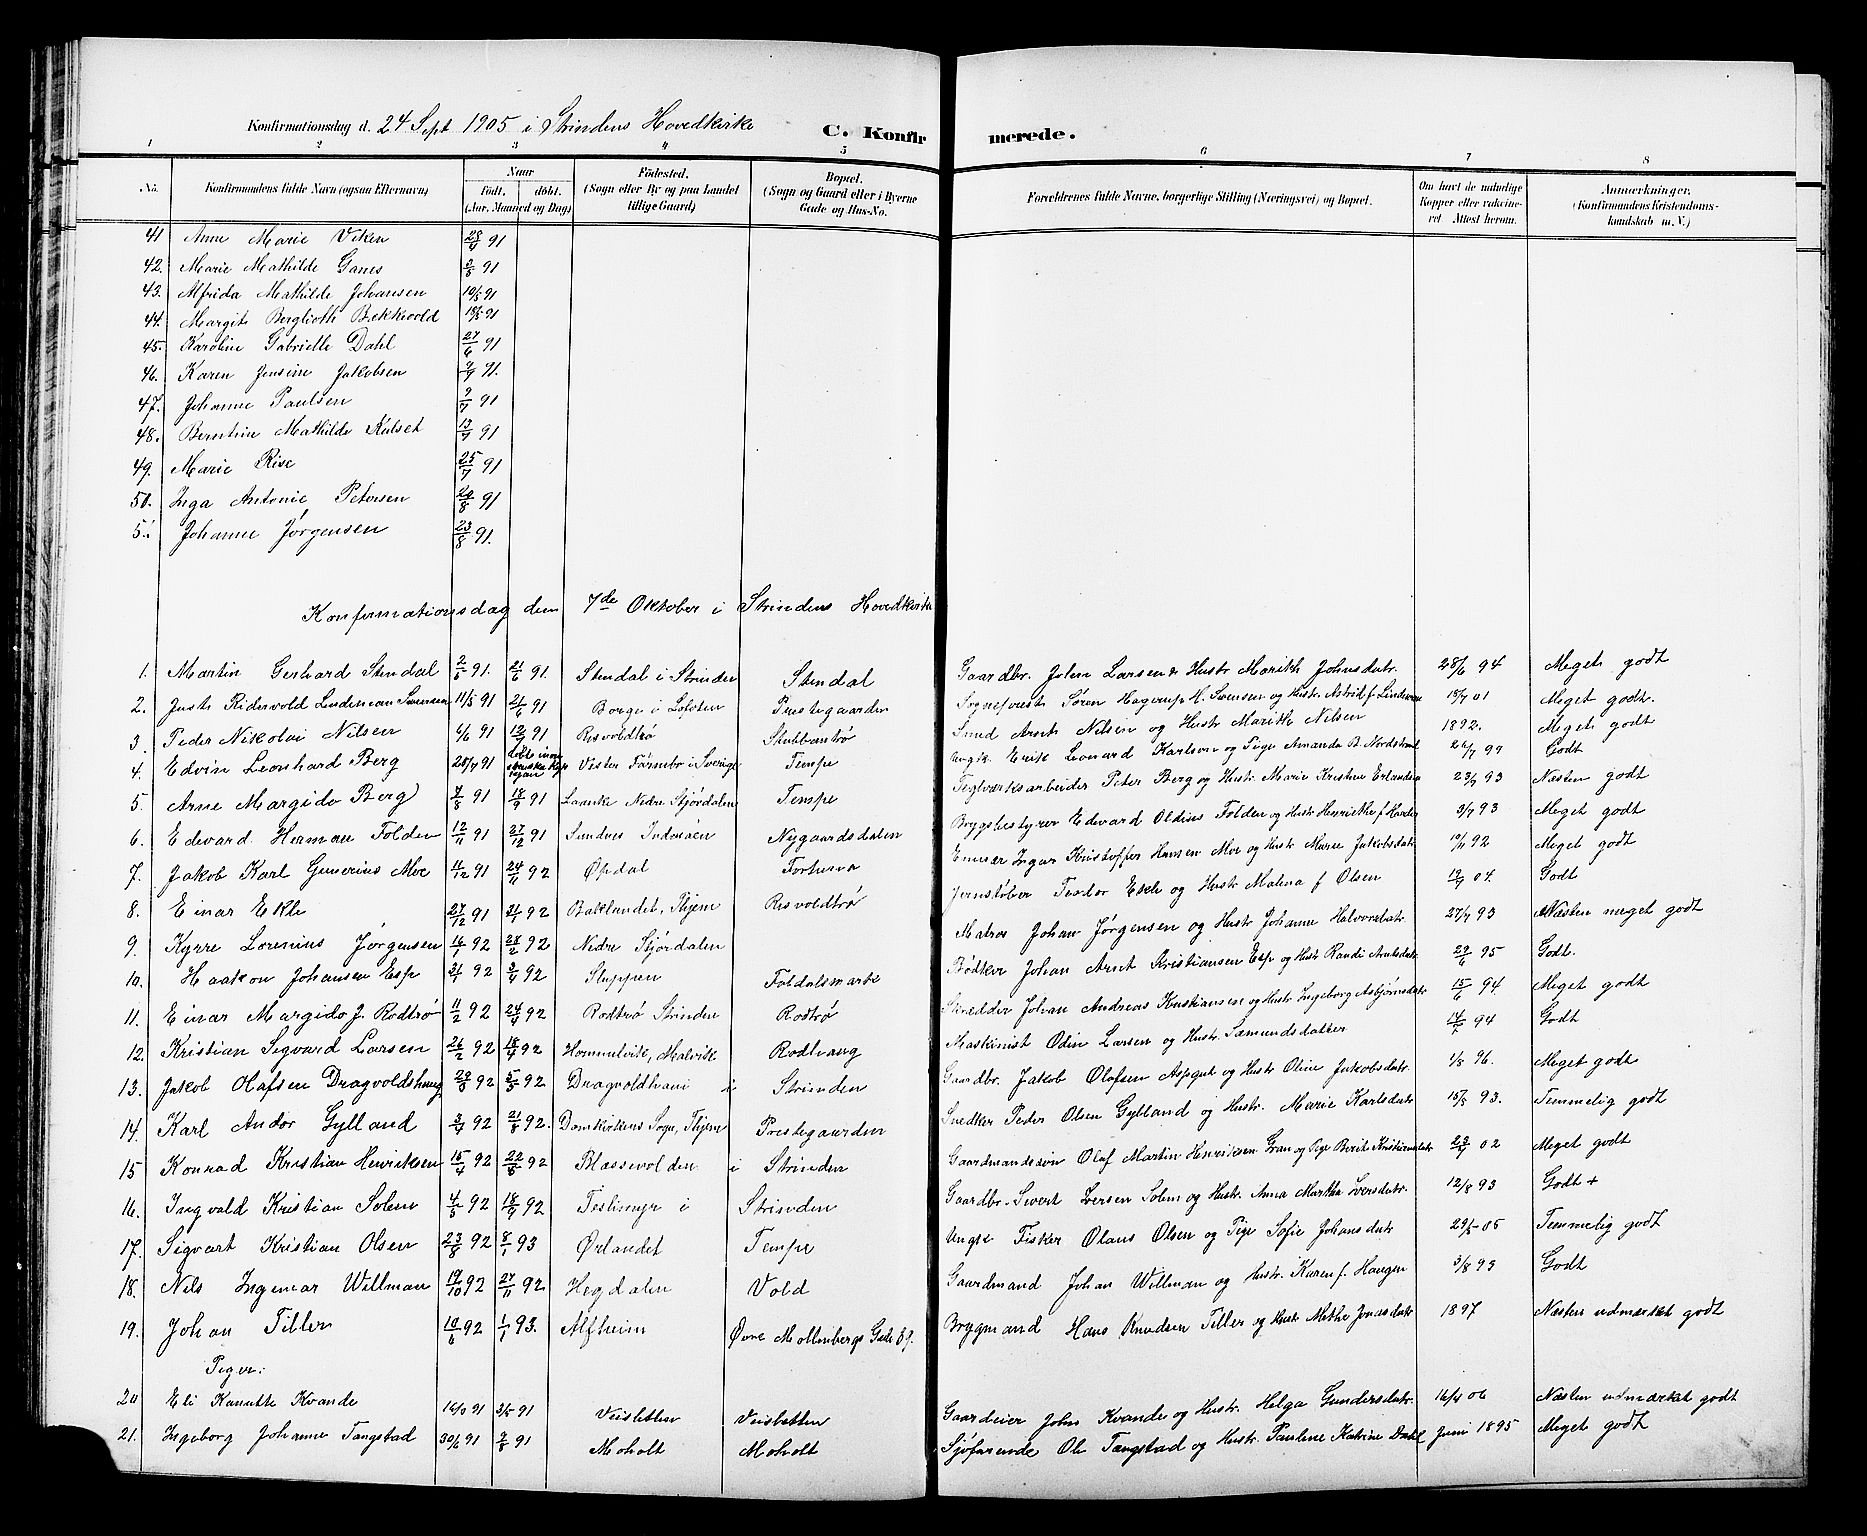 Konfirmationsdag d. 24 Sept 1905 i Strindens Hovedkirke C. Konfir merede.
1 2 3 4 5 6 7 8
No. Konfirmandens fulde Navn (ogsaa Efternavn) Naar født, døbt. (Aar, Maaned og Dag) Fødested. (Sogn eller By og paa Landet tillige Gaard) Bopæl. (Sogn og Gaard eller i Byerne Gade og Hus-No. Forældrenes fulde Navne, borgerlige Stilling (Næringsvei) og Bopæl. Om havt de naturlige Kopper eller vaccineret. Attest herom. Anmærkninger. (Konfirmandens Kristendomskundskab m. V.)
41 Anne Marie Viken 91
42. Marie Mathilde Ganes 91
43. Alfrida Mathilde Johansen 10/5 91
44. Margit Berglioth Bekkvold 91
45. Karoline Gabrielle Dahl 27/6 91
46. Karen Jensine Jakobsen 91.
47. Johanne Paulsen 9/7 91
48. Berntine Mathilde Kulset 13/7 91
49. Marie Rise 25/7 91
50. Inga Antonie Petersen 20/8 91
51 Johanne Jørgensen 23/8 91.
Konfirmationsdag den 7de Oktober i Strindens Hovedkirke
1. Martin Gerhard Stendal 91. 21/6 91. Stendal i Strinden Stendal Gaardbr. John Larsen & Hustr Marith Johnsdatr. 28/6 94 Meget godt
2. Just Ridervold Lindeman Svensen 11/5 91 21/6 91 Borge i Lofoten Prestegaarden Sogneprest Søren Hagerup H. Svensen og Hustr. Astrid f. Lindeman 01 Meget godt.
3. Peder Nikolai Nilsen 6/6 91 12/7 91 Risvoldtrø Stubbantrø Smed Arnt Nilsen og Hustr Marith Nilsen 1892. Meget godt
4. Edvin Leonhard Berg 91 Vister Färnebo i Sverige Tempe Ungk. Erik Leonard Karlson og Pige Amanda B. Nordstrøm Godt
5. Arne Margido Berg 91 18/9 91 Laanke Nedre Stjørdalen Tempe Teglverksarbeider Peter Berg og Hustr. Marie Kristine Erlandsen 93 Næsten godt
6. Edvard Herman Folden 12/11 91 27/12 91 Sundnes Inderøen Nygaardsdalen Brygsbestyrer Edvard Oldius Folden og Hustr Henriette f Harder 3/7 93 Meget godt
7. Jakob Karl Gunerius Moe 91 92 Opdal Fortuna Ingar Kristoffer Hansen Moe og Hustr Marie Jakobsdatr 92 Meget godt
8. Einar Ekle 27/12 91 92 Baklandet, Thjem Risvoldtrø Jernstøber Teodor Ekle og Hustr Malena f Olsen 04. Godt
9. Kyrre Lorenius Jørgensen 92 92 Nedre Stjørdalen Matros Johan Jørgensen og Hustr Johanne Halvorsdatr 27/7 93 Næsten meget godt
10. Haakon Johansen Esp 92 92 Sluppen Foldalsmarke Bødker Johan Arnt Kristiansen Esp og Hustr Randi Arntsdatr 95 Godt.
11. Einar Margido J. Rodtrø 11/2 92 24/4 92 Rodtrø Strinden Rodtrø Skredder Johan Andreas Kristiansen og Hustr Ingeborg Asbjørnsdatr 15/6 94 Meget godt
12. Kristian Sigvard Larsen 26/2 92 18/4 92 Hommelvik, Malvik Rodtvang Maskinist Odin Larsen og Hustr. Sæmundsdatter 94 Godt
13. Jakob Olafsen Dragvoldshaug 92 92 Dragvoldhaug i Strinden Gaardbr. Jakob Olafsen Aspgut og Hustr Oline Jakobsdatr. 96. Meget godt
14. Karl Andor Gylland 3/4 92 21/8 92. Domkirkens Sogn, Thjem Prestegaarden Snedker Peder Olsen Gylland og Hustr. Marie Karlsdatr 15/8 93. Temmelig godt
15 Konrad Kristian Henriksen 15/4 92 92 Blæssevolden i Strinden Gaardmandssøn Olaf Martin Henriksen Gran og Pige Berit Kristiansdatr 02 Meget godt
16. Ingvald Kristian Solem 4/5 92 18/9 92 Teslimyr i Strinden Gaardbr. Sivert Iversen Solem og Hustr. Anna Martha Iversdatr. 12/8 93 Godt +
17. Sigvart Kristian Olsen 23/8 92 8/1 93 Ørlandet Tempe Ungk Fisker Olaus Olsen og Pige Sofie Johansdatr 05 Temmelig godt
18. Nils Ingemar Willman 19/10 92 27/11 92. Hegdalen Vold Gaardmand Johan Willman og Hustr. Karen f. Haugen 3/8 93 Godt
19. Johan Tiller 92 1/1 93. Alfheim Øvre Møllenbergs Gade Brygmand Hans Knudsen Tiller og Hustr Mette Jonasdatr 1897 Næsten udmærket godt
Piger:
20 Eli Kanutte Kvande 91 91 Veisletten Veisletten Gaardeier John Kvande og Hustr. Helga Gundersdatr. 06 Næsten udmærket godt
21. Ingeborg Johanne Tangstad 91 91 Moholt Moholt Sjøfarende Ole Tangstad og Hustr. Pauline Katrine Dahl Juni 1895 Meget godt